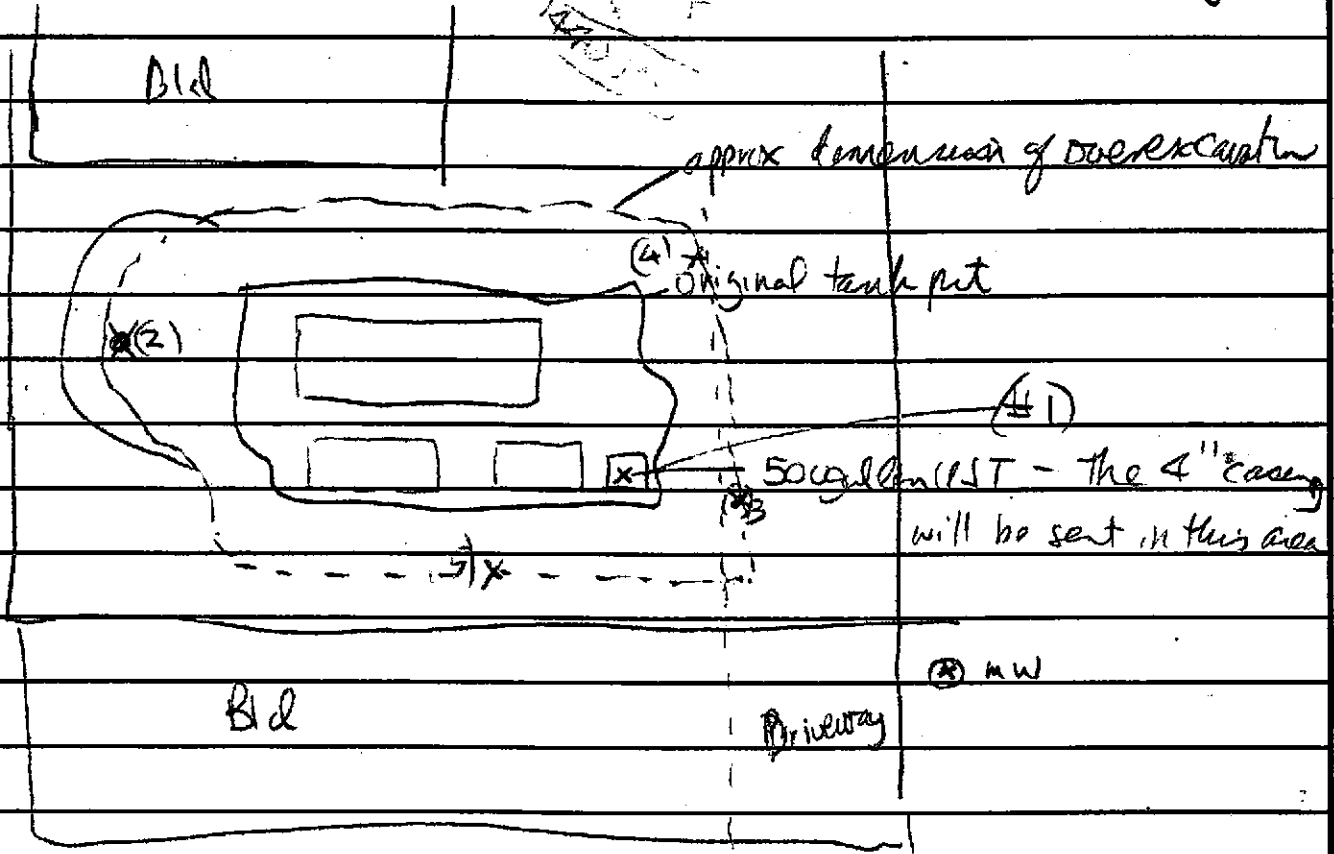 Bld
approx dimension of overexcavation
(4)
Original tank pit
(2)
(#1)
500 gallon UST - The 4" casing
will be sent in this area
3
MW
Bld
Driveway